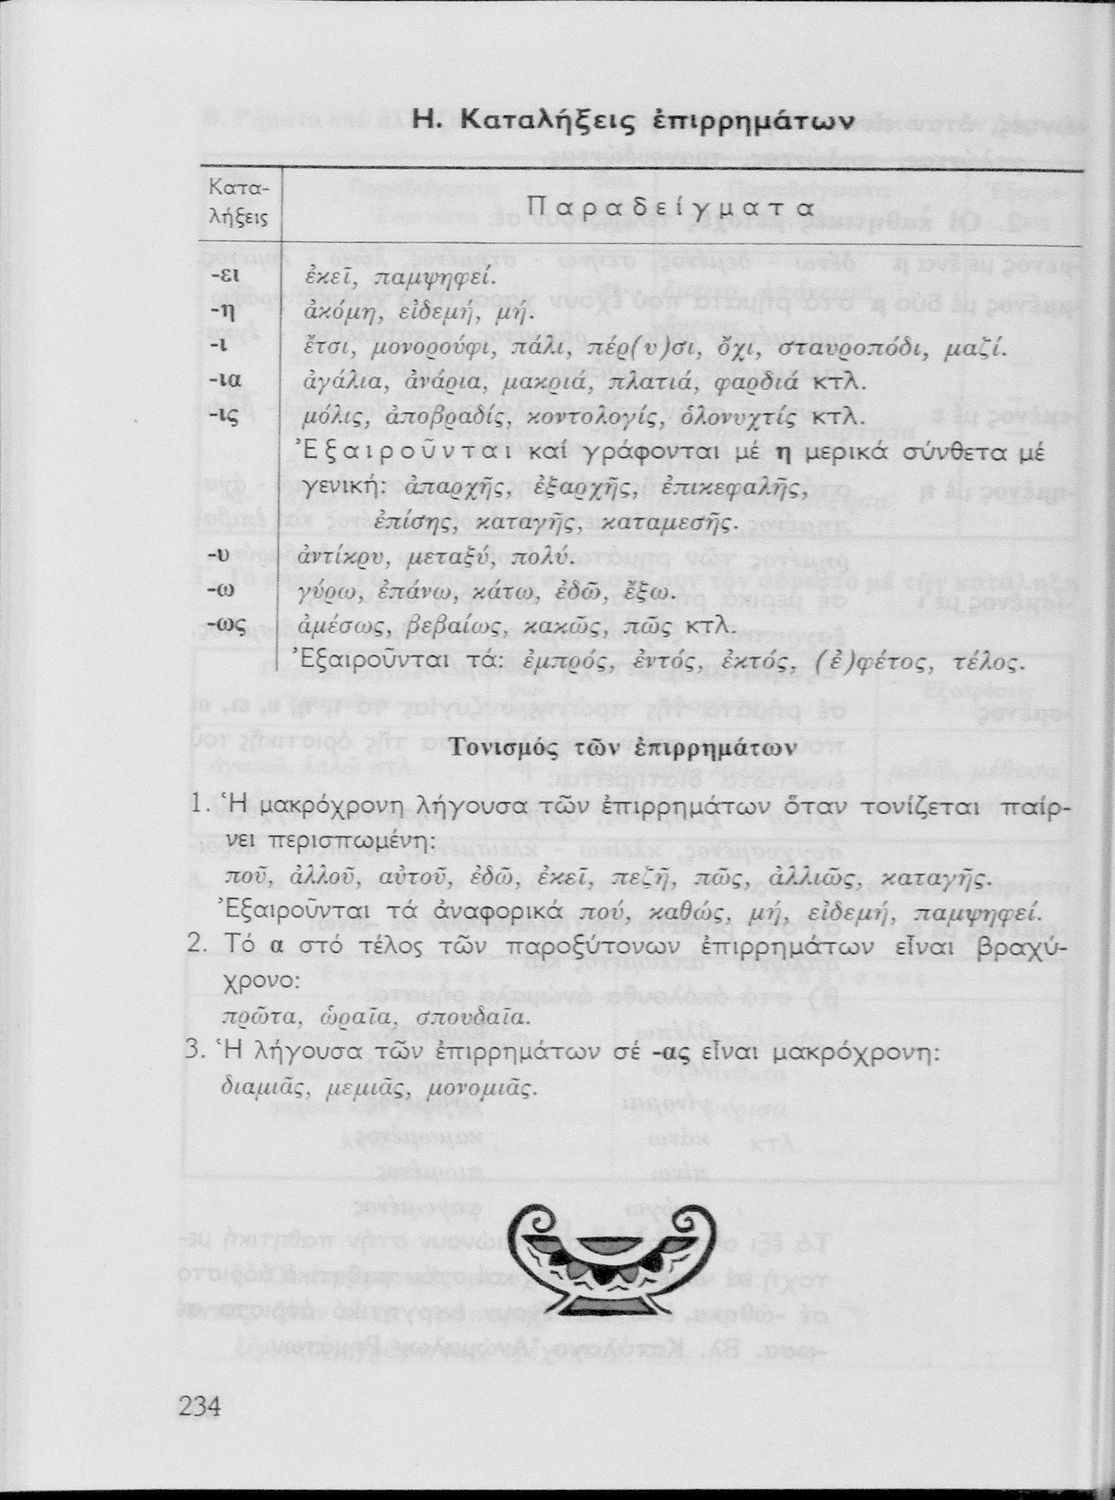 Η. Καταλήξεις ἐπιρρημάτων
Κατα-
λήξεις
Παραδείγματα
-ει ἐκεῖ, παμψηφεί.
-η ἀκόμη, εἰδεμή, μή.
-ι ἔτσι, μονορούφι, πάλι, πέρ(υ)σι, ὄχι, σταυροπόδι, μαζί.
-ια ἀγάλια, ἀνάρια, μακριά, πλατιά, φαρδιά κτλ.
-ις μόλις, ἀποβραδίς, κοντολογίς, ὁλονυχτίς κτλ.
Ἐξαιροῦνται καί γράφονται μέ η μερικά σύνθετα μέ
γενική: ἀπαρχῆς, ἐξαρχῆς, ἐπικεφαλῆς,
ἐπίσης, καταγῆς, καταμεσῆς.
-υ ἀντίκρυ, μεταξύ, πολύ.
-ω γύρω, ἐπάνω, κάτω, ἐδῶ, ἔξω.
-ως ἀμέσως, βεβαίως, κακῶς, πῶς κτλ.
Ἐξαιροῦνται τά: ἐμπρός, ἐντός, ἐκτός, (ἐ)φέτος, τέλος.
Τονισμός τῶν ἐπιρρημάτων
1. Ἡ μακρόχρονη λήγουσα τῶν ἐπιρρημάτων ὅταν τονίζεται παίρ-
νει περισπωμένη:
ποῦ, ἀλλοῦ, αὐτοῦ, ἐδῶ, ἐκεῖ, πεζῆ, πῶς, ἀλλιῶς, καταγῆς.
Ἐξαιροῦνται τά ἀναφορικά πού, καθώς, μή, εἰδεμή, παμψηφεί.
2. Τό α στό τέλος τῶν παροξύτονων ἐπιρρημάτων εἶναι βραχύ-
χρονο:
πρῶτα, ὡραῖα, σπουδαῖα.
3. Ἡ λήγουσα τῶν ἐπιρρημάτων σέ -ας εἶναι μακρόχρονη:
διαμιᾶς, μεμιᾶς, μονομιᾶς.
234